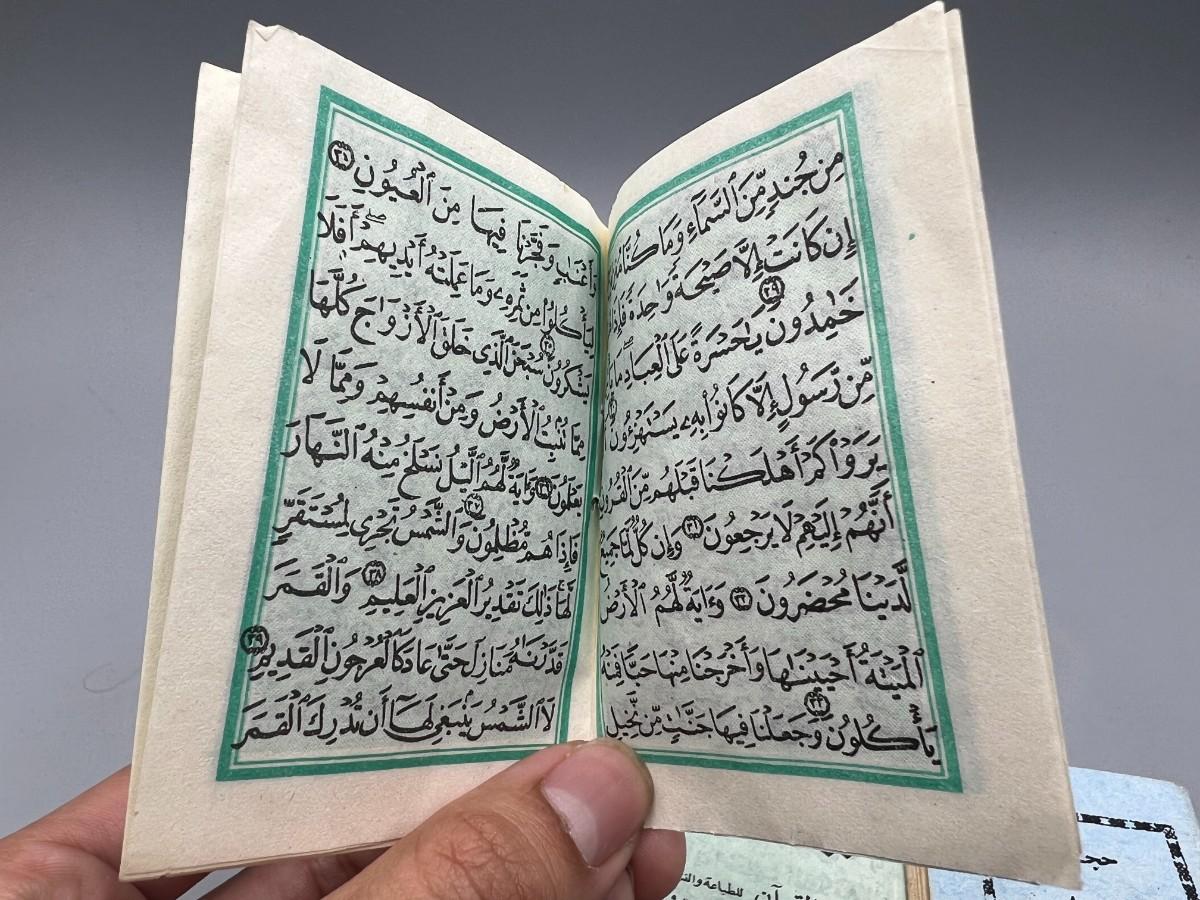 مِن جُندٍ مِّنَ ٱلسَّمَآءِ وَمَا كُنَّا
إِن كَانَتْ إِلَّا صَيْحَةً وَٰحِدَةً فَإِذَا
خَٰمِدُونَ ٢٩ يَٰحَسْرَةً عَلَى ٱلْعِبَادِ مَا
مِّن رَّسُولٍ إِلَّا كَانُوا۟ بِهِۦ يَسْتَهْزِءُونَ
يَرَوْا۟ كَمْ أَهْلَكْنَا قَبْلَهُم مِّنَ ٱلْقُرُونِ
أَنَّهُمْ إِلَيْهِمْ لَا يَرْجِعُونَ ٣١ وَإِن كُلٌّ لَّمَّا جَمِيعٌ
لَّدَيْنَا مُحْضَرُونَ ٣٢ وَءَايَةٌ لَّهُمُ ٱلْأَرْضُ
ٱلْمَيْتَةُ أَحْيَيْنَٰهَا وَأَخْرَجْنَا مِنْهَا حَبًّا فَمِنْهُ
يَأْكُلُونَ ٣٣ وَجَعَلْنَا فِيهَا جَنَّٰتٍ مِّن نَّخِيلٍ
وَأَعْنَٰبٍ وَفَجَّرْنَا فِيهَا مِنَ ٱلْعُيُونِ ٣٤
لِيَأْكُلُوا۟ مِن ثَمَرِهِۦ وَمَا عَمِلَتْهُ أَيْدِيهِمْ ۖ أَفَلَا
يَشْكُرُونَ ٣٥ سُبْحَٰنَ ٱلَّذِى خَلَقَ ٱلْأَزْوَٰجَ كُلَّهَا
مِمَّا تُنۢبِتُ ٱلْأَرْضُ وَمِنْ أَنفُسِهِمْ وَمِمَّا لَا
يَعْلَمُونَ ٣٦ وَءَايَةٌ لَّهُمُ ٱلَّيْلُ نَسْلَخُ مِنْهُ ٱلنَّهَارَ
فَإِذَا هُم مُّظْلِمُونَ ٣٧ وَٱلشَّمْسُ تَجْرِى لِمُسْتَقَرٍّ
لَّهَا ۚ ذَٰلِكَ تَقْدِيرُ ٱلْعَزِيزِ ٱلْعَلِيمِ ٣٨ وَٱلْقَمَرَ
قَدَّرْنَٰهُ مَنَازِلَ حَتَّىٰ عَادَ كَٱلْعُرْجُونِ ٱلْقَدِيمِ ٣٩
لَا ٱلشَّمْسُ يَنۢبَغِى لَهَآ أَن تُدْرِكَ ٱلْقَمَرَ
القرآن للطباعة